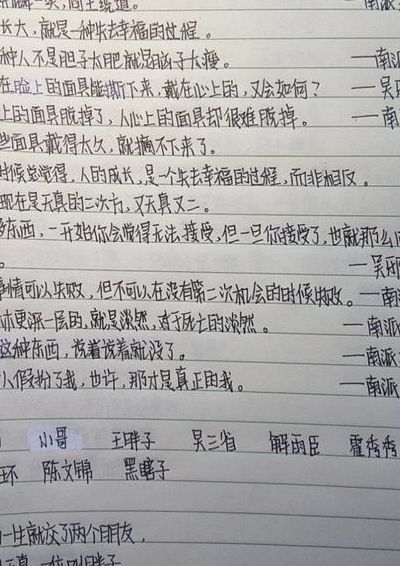 一笑,阎王绕道。 ——南派
长大,就是一种失去幸福的过程。
种人不是胆子太肥就是脑子太瘦。 ——南
在脸上的面具能撕下来,戴在心上的,又会如何? ——吴
上的面具脱掉了,人心上的面具却很难脱掉。 ——南
些面具戴得太久,就摘不下来了。
时候总觉得,人的成长,是一个失去幸福的过程,而非相反。
现在是天真的二次方,又天真又二。
多东西,一开始你会觉得无法接受,但一旦你接受了,也就那么
。 ——吴邪
事情可以失败,但不可以在没有第二次机会的时候失败。——南
更深一层的,就是淡然,对于死亡的淡然。 ——南派
这种东西,说着说着就没了。 ——南派
人假扮了我,也许,那才是真正的我。 ——南派
小哥 王胖子 吴三省 解雨臣 霍秀秀
环 陈文锦 黑瞎子
一生就交了两个朋友,
一位叫胖子